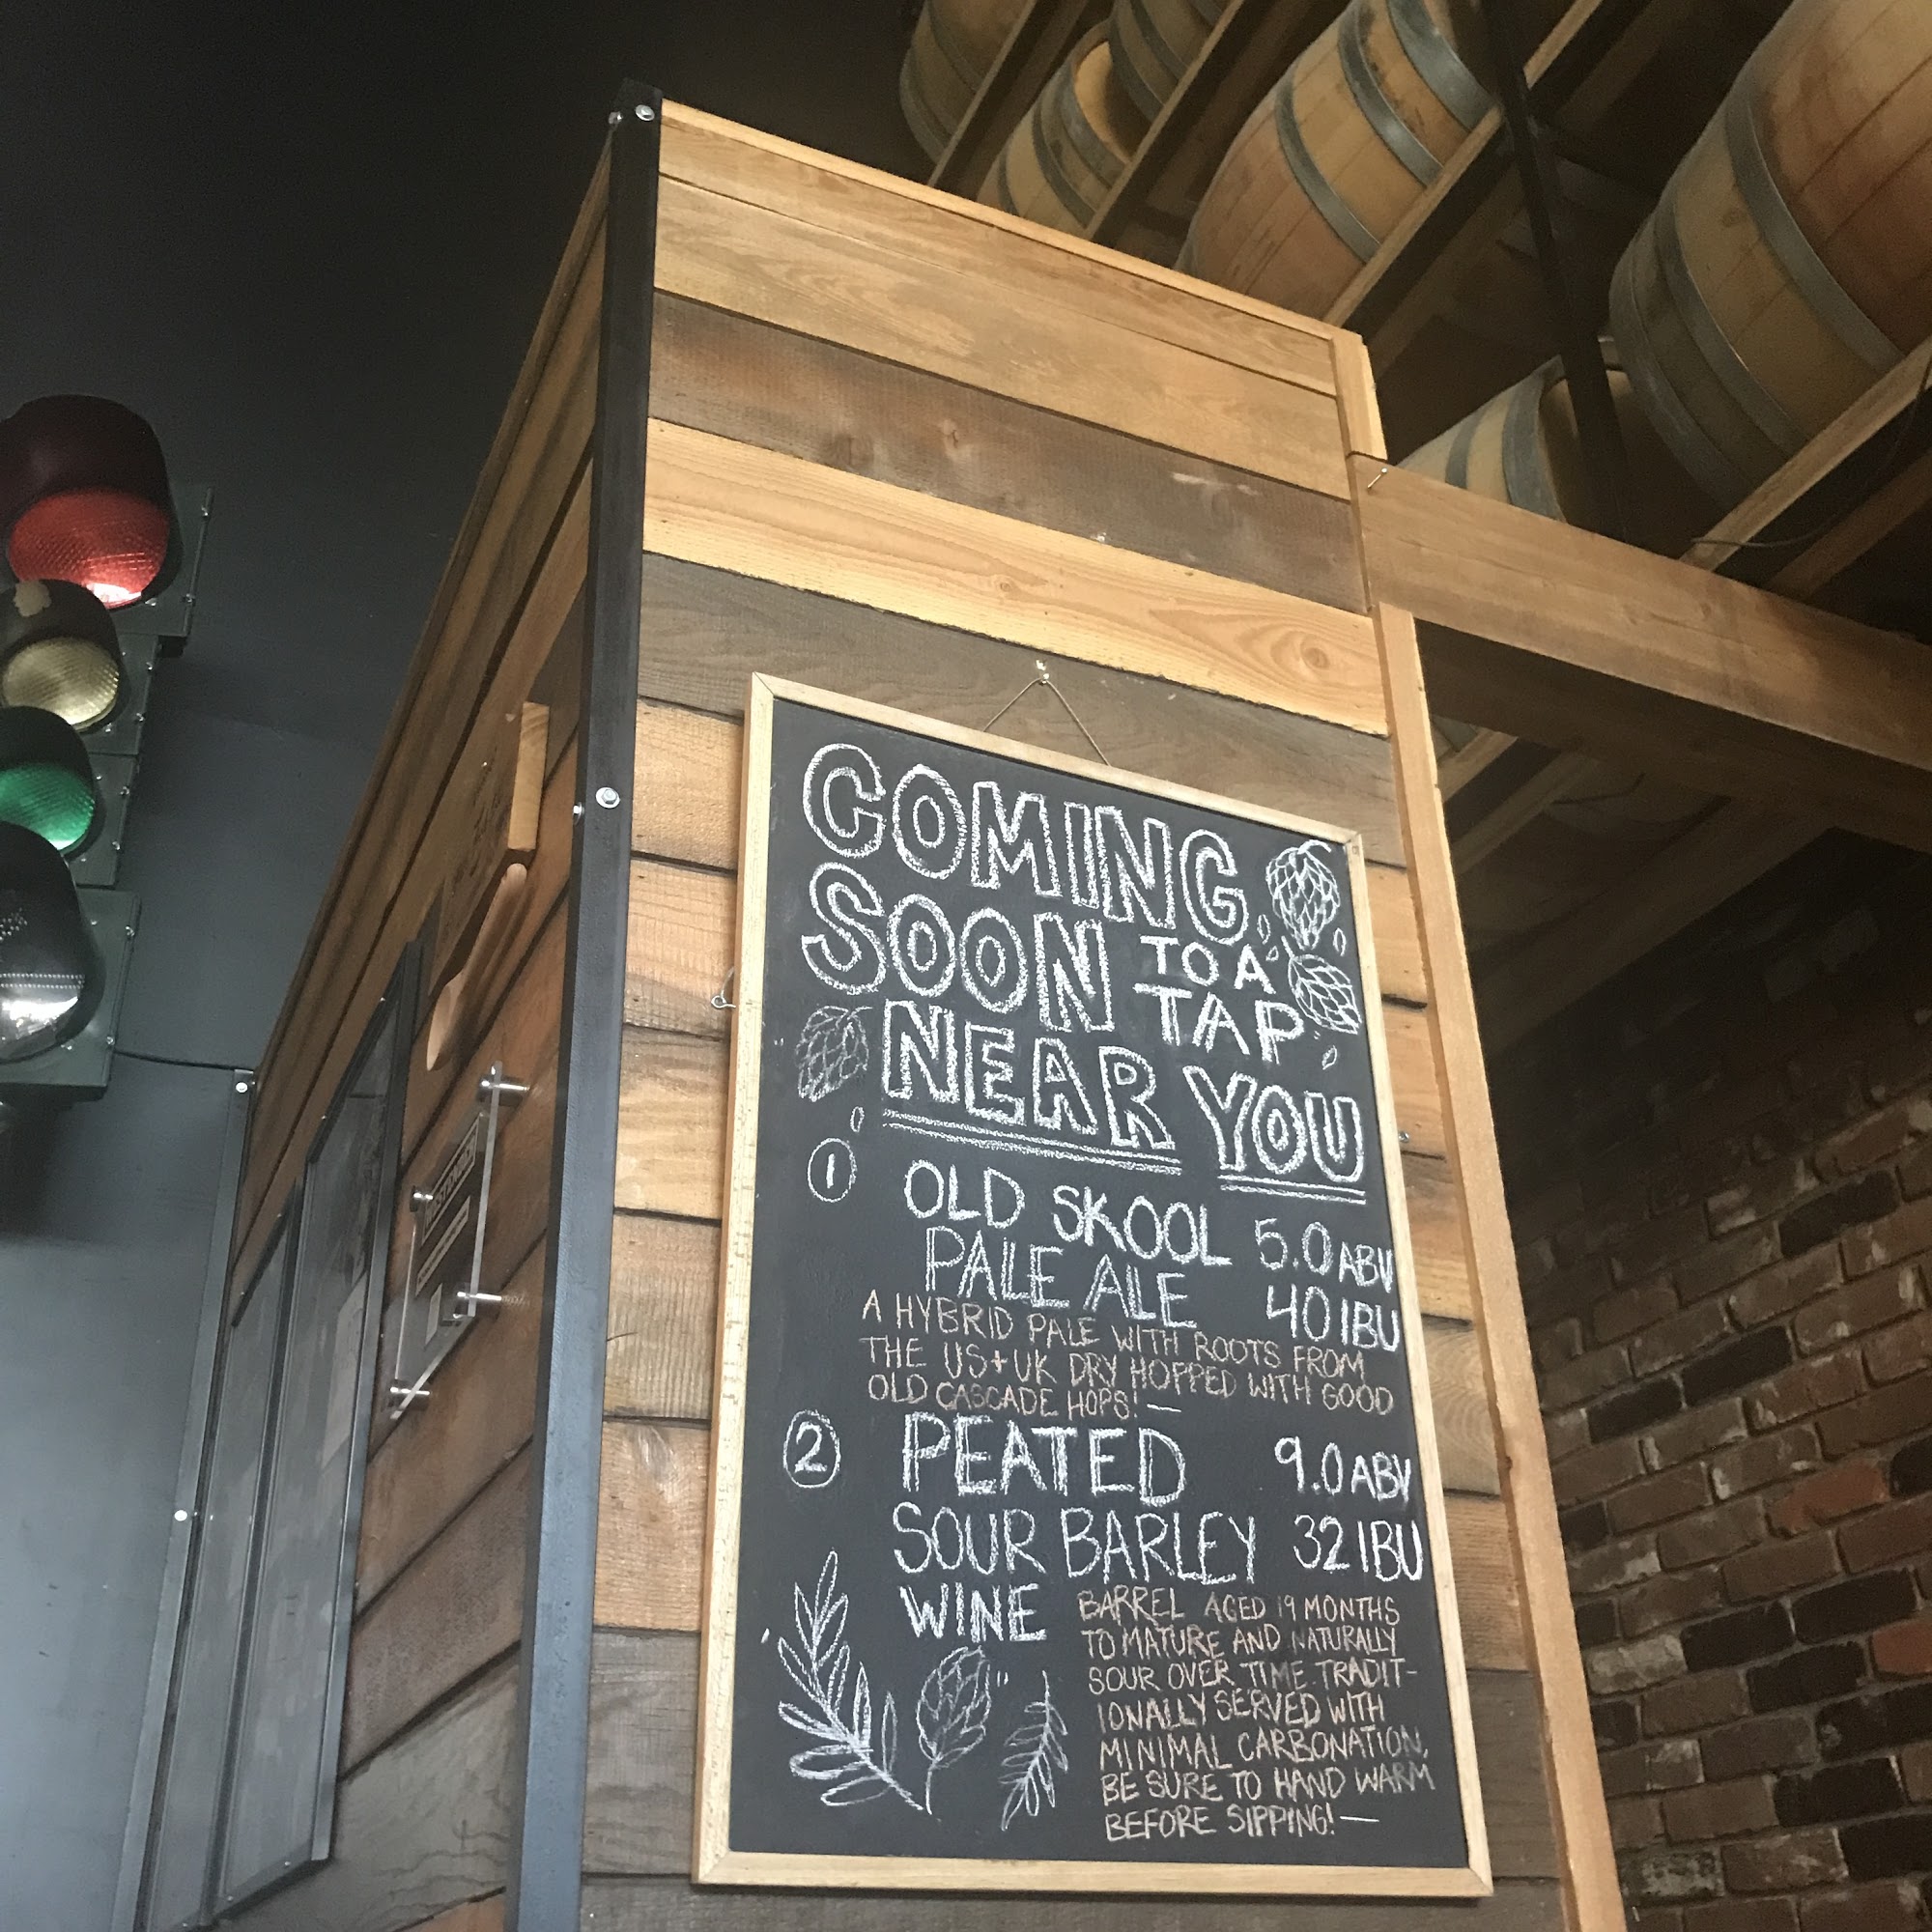 COMING
SOON TO A
TAP
NEAR YOU
1 OLD SKOOL 5.0 ABV
PALE ALE 40 IBU
A HYBRID PALE WITH ROOTS FROM
THE US + UK DRY HOPPED WITH GOOD
OLD CASCADE HOPS! —
2 PEATED 9.0 ABV
SOUR BARLEY 32 IBU
WINE
BARREL AGED 19 MONTHS
TO MATURE AND NATURALLY
SOUR OVER TIME. TRADIT-
IONALLY SERVED WITH
MINIMAL CARBONATION,
BE SURE TO HAND WARM
BEFORE SIPPING! —